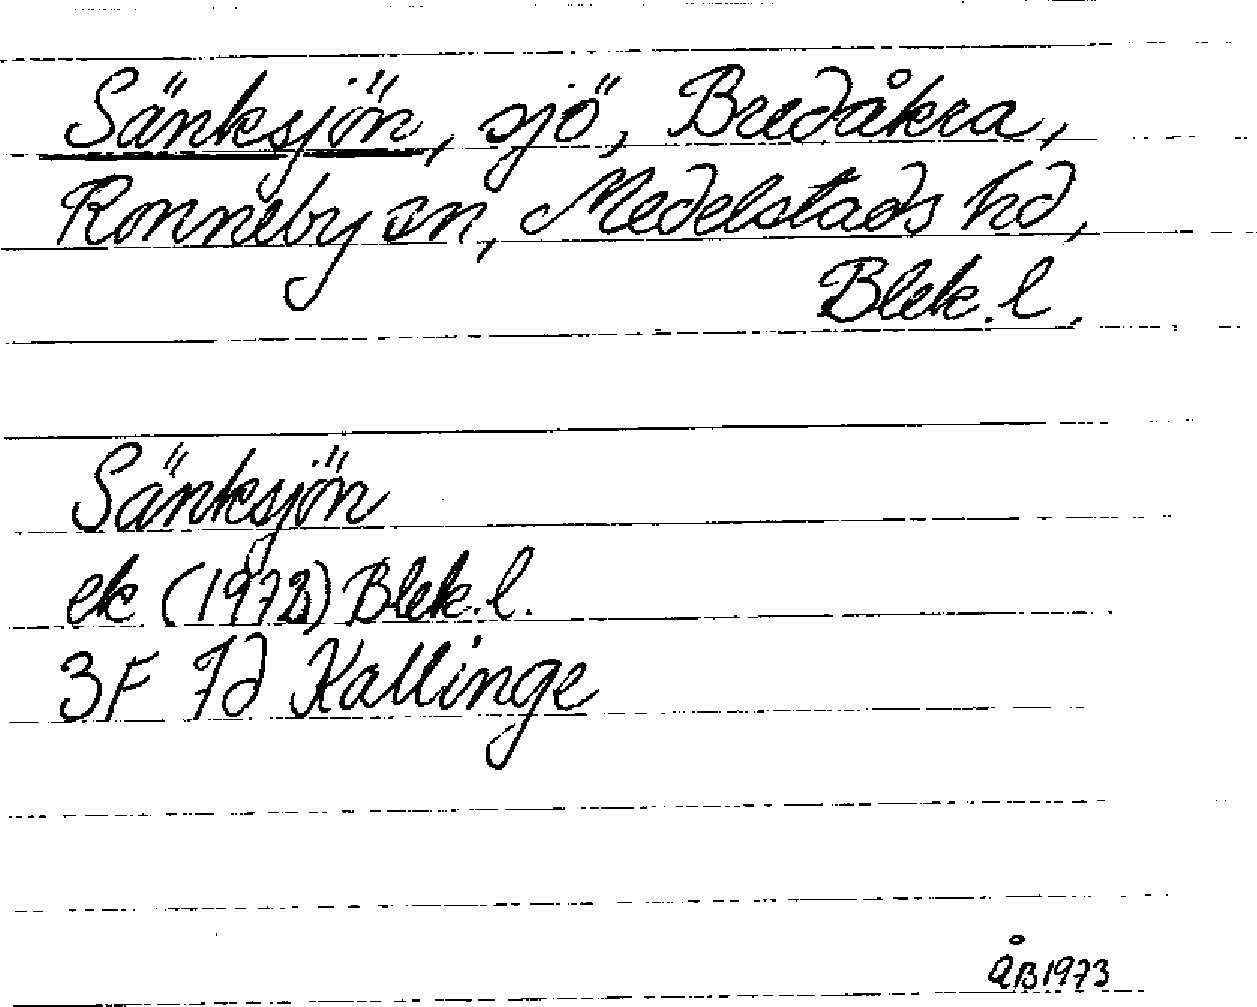 Sänksjön, sjö, Bredåkra,
Ronneby sn, Medelstads hd,
Blek. l.
Sänksjön
ek (1972) Blek. l.
3F 7d Kallinge
ÅB 1973